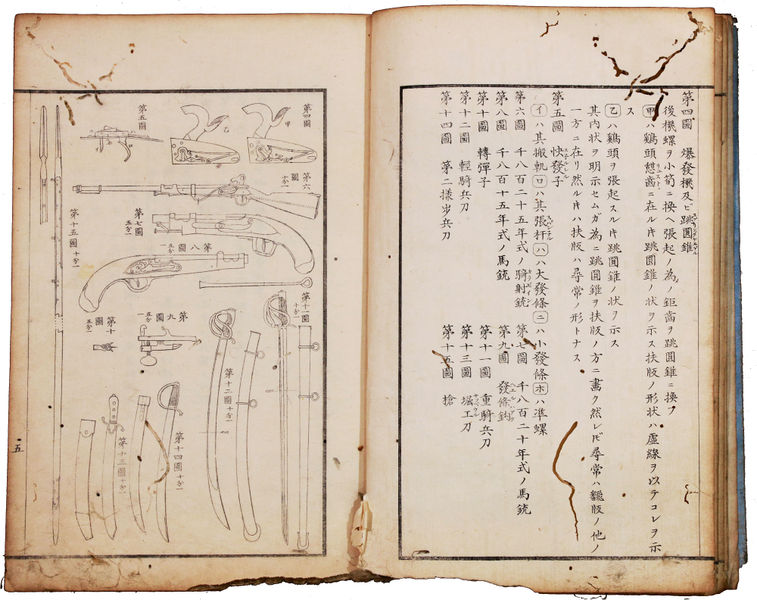 第四圖 爆發機及ヒ跳圓錐
後機螺ヲ小筍ニ換ヘ張起ノ為ノ鉅齒ヲ跳圓錐ニ換フ
甲ハ鷄頭憇齒ニ在ル𪜈跳圓錐ノ状ヲ示ス扶版ノ形状ハ虚線ヲ以テコレヲ示
ス
乙ハ鷄頭ヲ張起スル𪜈跳圓錐ノ状ヲ示ス
其内状ヲ明示セムガ為ニ跳圓錐ヲ扶版ノ方ニ畫ク然レ𪜈尋常ハ版ノ他ノ
一方ニ在リ然ル𪜈ハ扶版ハ尋常ノ形トナス
第五圖 快發子
イハ其搬軏ロハ其張杆ハハ大發條ニハ小發條ホハ準螺
第六圖 千八百二十五年式ノ騎射銃 第七圖 千八百二十年式ノ馬銃
第八圖 千八百十五年式ノ馬銃 第九圖 發條鈎
第十圖 轉彈子 第十一圖 重騎兵刀
第十二圖 輕騎兵刀 第十三圖 堀工刀
第十四圖 第二樣步兵刀 第十五圖 槍
第四圖
甲
乙
第五圖
第六圖 十分一
第七圖 五分一
第八圖 五分一
第九圖 五分一
第十圖 五分一
第十一圖 十分一
第十二圖 十分一
第十三圖 十分一
第十四圖 十分一
第十五圖 十分一
一五